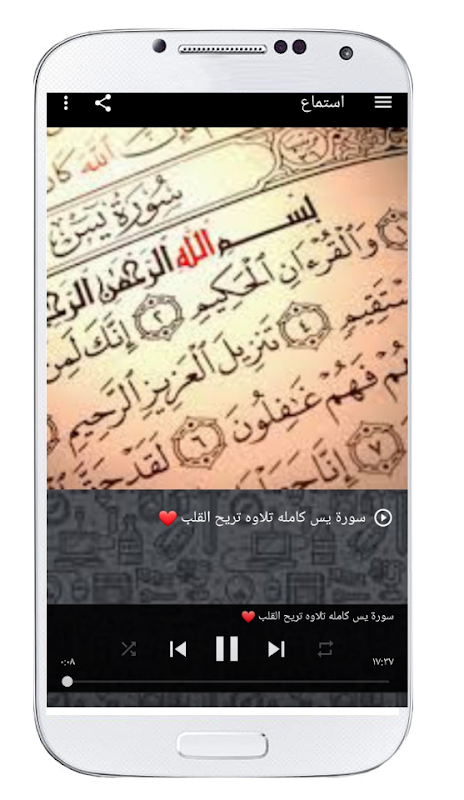 استماع
سورة يس
بسم الله الرحمن الرح
وَالْقُرْءَانِ الْحَكِيمِ ٢ إِنَّكَ لَمِن
سْتَقِيمٍ ٤ تَنزِيلَ الْعَزِيزِ الرَّحِيمِ
هُمْ فَهُمْ غَٰفِلُونَ ٦ لَقَدْ حَقَّ
٧ إِنَّا جَعَلْنَا
سورة يس كامله تلاوه تريح القلب ❤️
سورة يس كامله تلاوه تريح القلب ❤️
٠:٠٨
١٧:٣٧